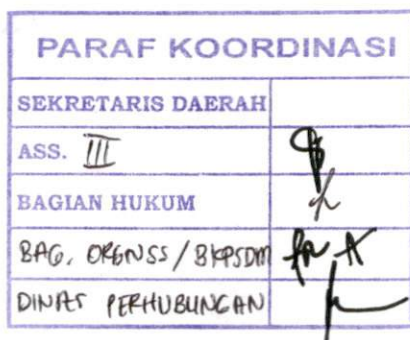 PARAF KOORDINASI
SEKRETARIS DAERAH
ASS. III
BAGIAN HUKUM
BAG. ORGNSS / BKPSDM
DINAS PERHUBUNGAN